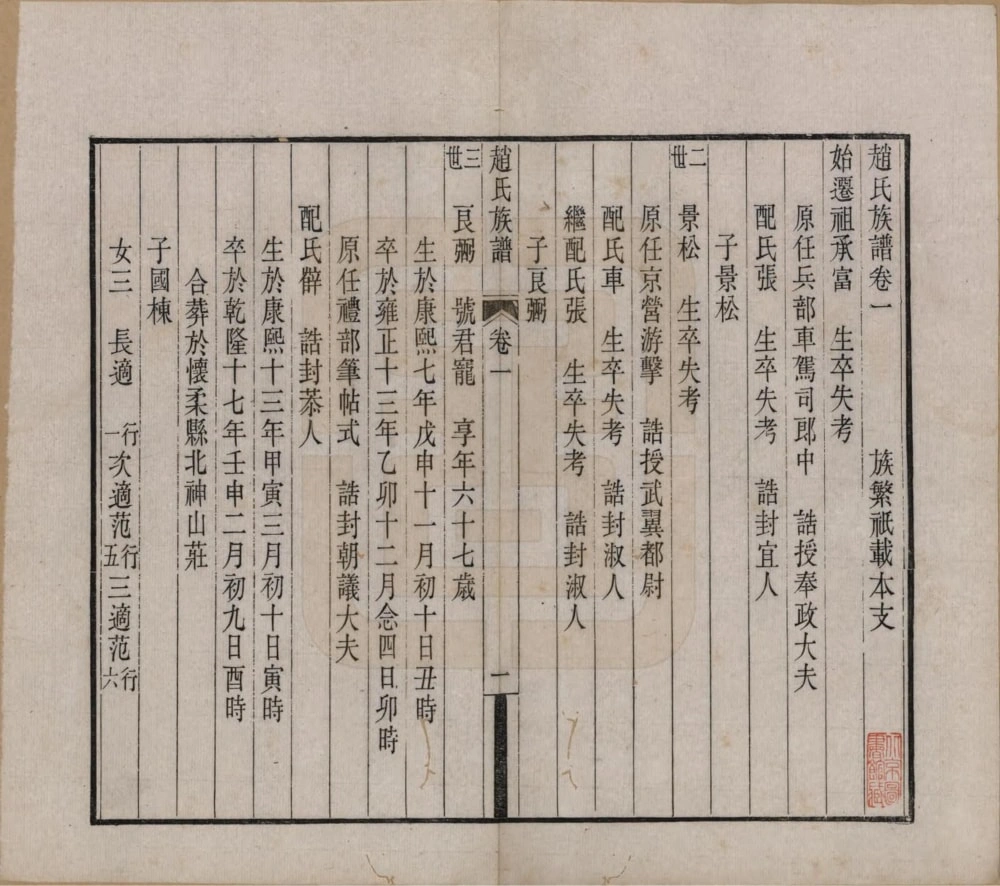 趙氏族譜卷一　族繁祇載本支
始遷祖承富　生卒失考
原任兵部車駕司郎中　誥授奉政大夫
配氏張　生卒失考　誥封宜人
子景松
二世　景松　生卒失考
原任京營游擊　誥授武翼都尉
配氏車　生卒失考　誥封淑人
繼配氏張　生卒失考　誥封淑人
子良弼
趙氏族譜　卷一　一
三世　良弼　號君寵　享年六十七歲
生於康熙七年戊申十一月初十日丑時
卒於雍正十三年乙卯十二月念四日卯時
原任禮部筆帖式　誥封朝議大夫
配氏辥　誥封恭人
生於康熙十三年甲寅三月初十日寅時
卒於乾隆十七年壬申二月初九日酉時
合葬於懷柔縣北神山莊
子國棟
女三　長適　行一　次適范　行五　三適范　行六